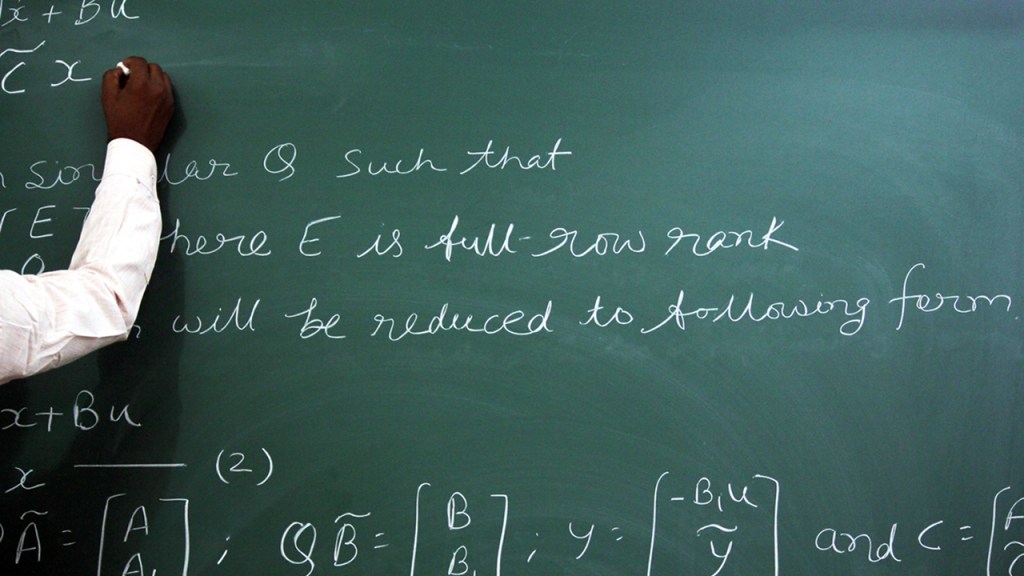 ẋ + Bu
C̃ x
singular Q such that
[E] where E is full-row rank
will be reduced to following form.
x + Bu
x ——— (2)
Ã = [A A₁] ; Q B̃ = [B B₁] ; y = [-B₁u ỹ] and C = [